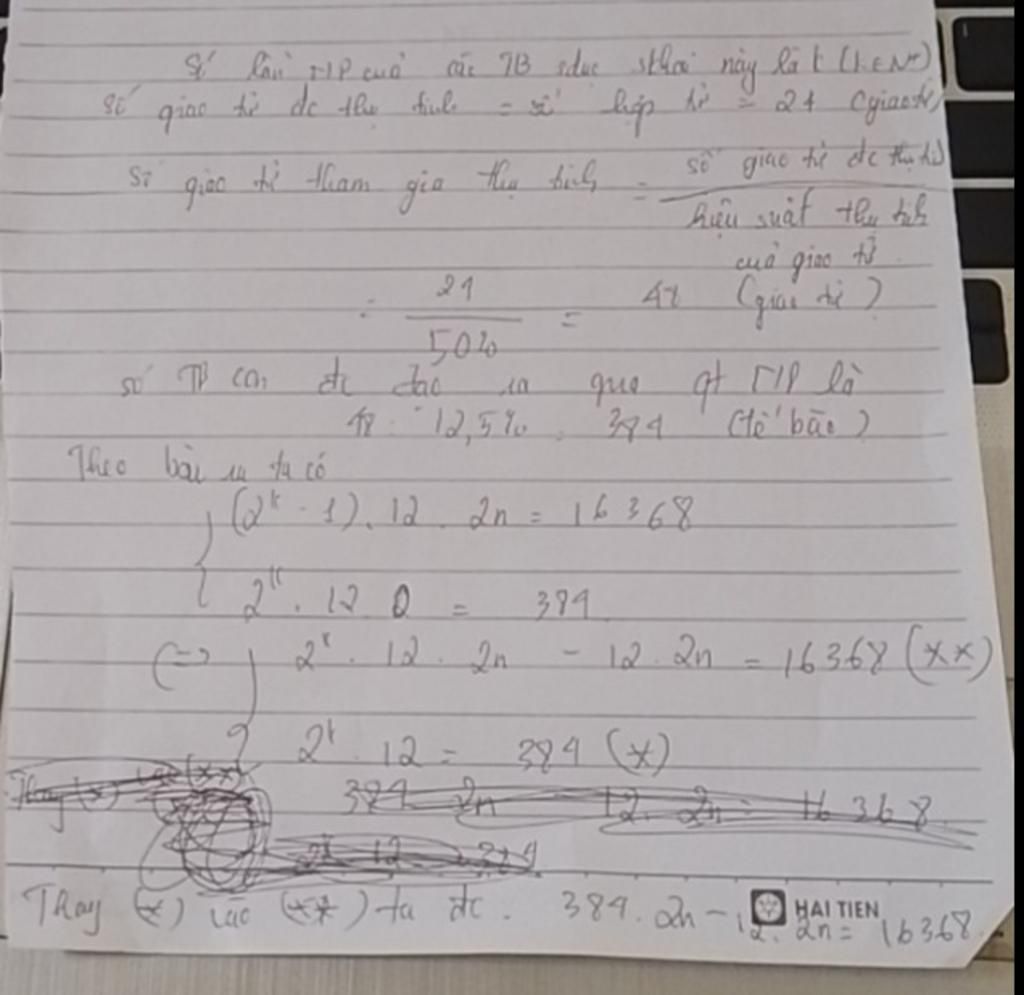 Số lần NP của các TB sduc skhai này là k (k∈N*)
số giao tử đc thụ tinh = số hợp tử = 24 (giao tử)
số giao tử tham gia thụ tinh = số giao tử đc thụ ti
hiệu suất thụ tinh
của giao tử
= 24 / 50% = 48 (giao tử)
số TB con đc tạo ra qua qt NP là
48 : 12,5% = 384 (tế bào)
Theo bài ra ta có
(2ᵏ - 1). 12 . 2n = 16368
2ᵏ . 12 = 384
(=) 2ᵏ . 12 . 2n - 12 . 2n = 16368 (**)
2ᵏ . 12 = 384 (*)
Thay (*) vào (**)
384 2n 12. 2n = 16 368
2ᵏ 12 384
Thay (*) vào (**) ta đc. 384. 2n - 12. 2n = 16368
HAI TIEN